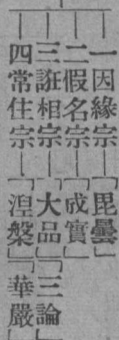 一因緣宗—「毘曇」
二假名宗—「成實」
三誑相宗—「大品」「三論」
四常住宗—「湼槃」「華嚴」